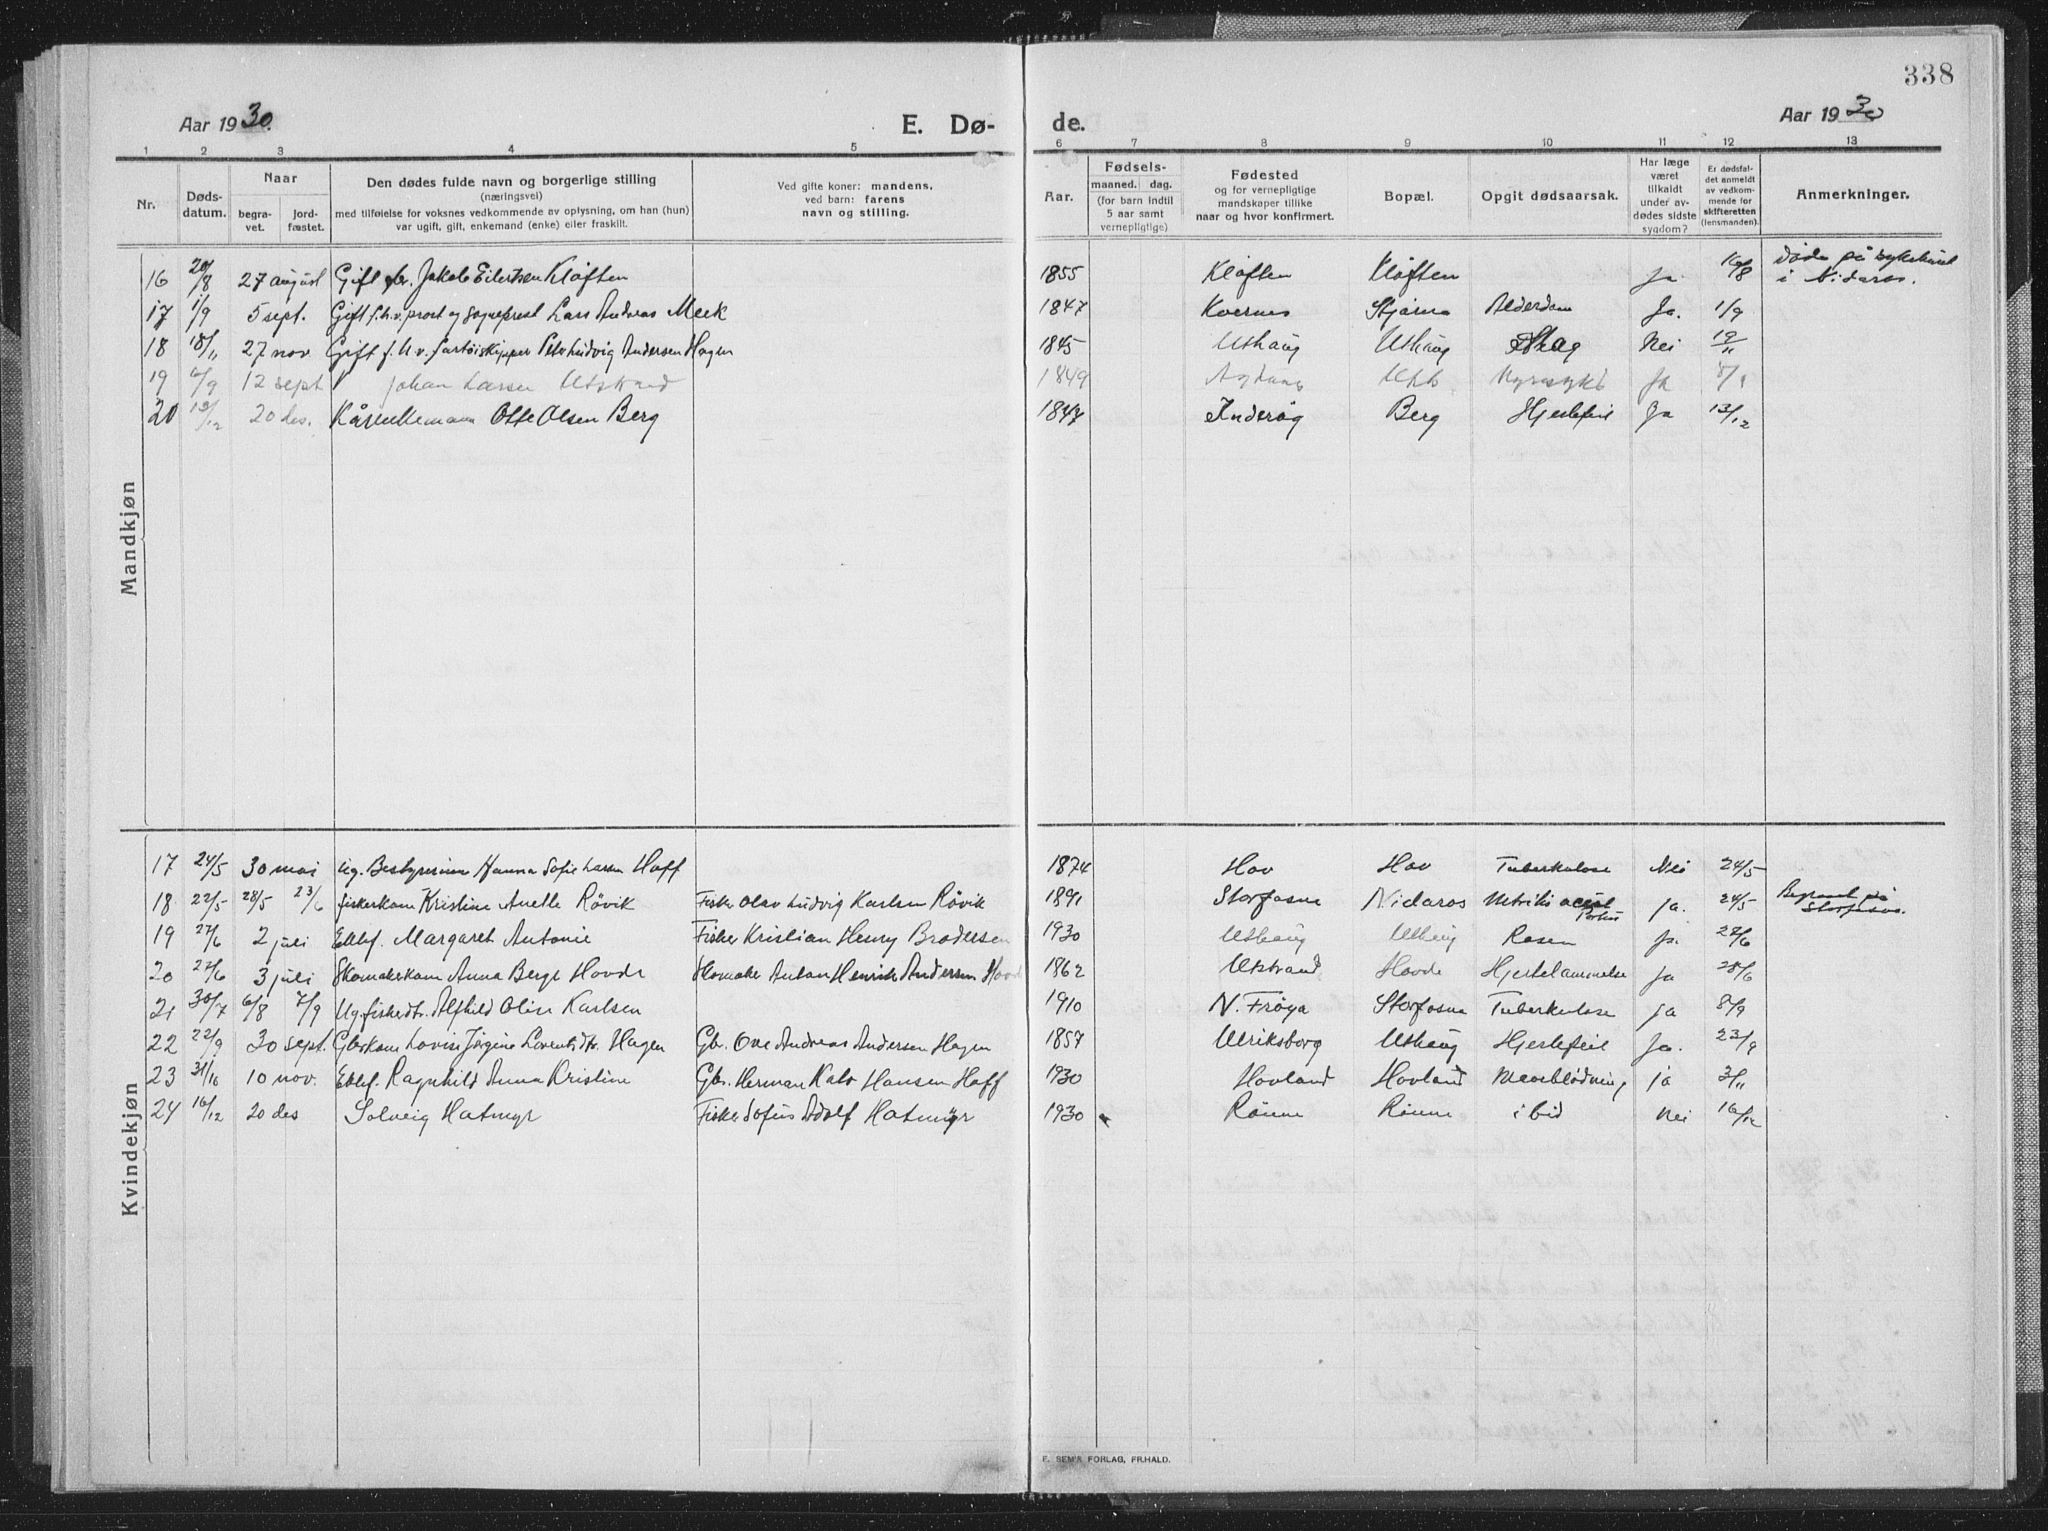 338
Aar 1930. E. Dø- de. Aar 1930
1 2 3 4 5 6 7 8 9 10 11 12 13
Nr. Døds-datum. Naar begra-vet. jord-fæstet. Den dødes fulde navn og borgerlige stilling (næringsvei) med tilføielse for voksnes vedkommende av oplysning, om han (hun) var ugift, gift, enkemand (enke) eller fraskilt. Ved gifte koner: mandens, ved barn: farens navn og stilling. Aar. Fødsels- maaned. dag. (for barn indtil 5 aar samt vernepligtige) Fødested og for vernepligtige mandskaper tillike naar og hvor konfirmert. Bopæl. Opgit dødsaarsak. Har læge været tilkaldt under av-dødes sidste sygdom? Er dødsfal-det anmeldt av vedkom-mende for skifteretten (lensmanden). Anmerkninger.
Mandkjøn
16 20/8 27 august Gift Jakob Eilertsen Kløften 1855 Kløften Kløften ja i Nidaros.
17 1/9 5 sept. Gift f.h.v. prost og sogneprest Lars Andreas Meek 1847 Kvernes Stjørna Alderdom Ja. 1/9
18 18/11 27 nov Gift f.h.v. fartøiskipper Peter Ludvig Andersen Hagen 1845 Uthaug Uthaug Slag Nei 19/11
19 6/9 12 sept Johan Larsen Utstrand 1849 Agdenes Nyresykd Ja
20 13/12 20 des. Kårenkemann Otte Olsen Berg 1847 Inderøy Berg Hjertefeil Ja 13/12
Kvindekjøn
17 24/5 30 mai Ug. Bestyrerinne Hanna Sofie Larsen Hoff 1874 Hov Hov Tuberkulose Nei 24/5
18 22/5 28/5 23/6 fiskerkone Kristine Anette Røvik Fisker Olav Ludvig Karlsen Røvik 1891 Storfosna Nidaros ja. 24/5 Begravet på Storfosna.
19 27/6 2 juli Ektef. Margaret Antonie Fisker Kristian Henry Brodersen 1930 Uthaug Uthaug Rosen ja. 28/6
20 27/6 3 juli Skomakerkone Anna Berge Hovde Skomaker Anton Henrik Andersen Hovde 1862 Utstrand Hovde Hjertelammelse ja 28/6
21 30/7 6/8 7/9 Ug. fiskerdtr. Alfhild Oline Karlsen 1910 N. Frøya Storfosna Tuberkulose ja 8/9
22 22/9 30 sept. Gbrkone Lovise Jørgine Lorentsdtr. Hagen Gbr. Ove Andreas Andersen Hagen 1857 Ulriksborg Uthaug Hjertefeil Ja. 23/9
23 31/10 10 nov. Ektef. Ragnhild Anna Kristine Gbr. Herman Kato Hansen Hoff 1930 Hovland Hovland Naveblødning ja 3/11
24 16/12 20 des Solveig Hatmyr Fisker Sofus Adolf Hatmyr 1930 Rønne Rønne Nei 16/12
E. SEM'S FORLAG, FR.HALD.